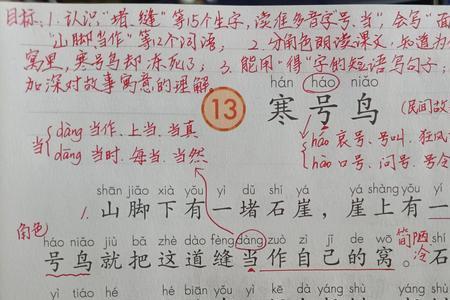 目标、1. 认识"堵、缝"等15个生字,读准多音字"号、当",会写"面
"山脚、当作"等12个词语, 2. 分角色朗读课文,知道为
窝里,寒号鸟却冻死了; 3. 能用"得"字的短语写句子;
加深对故事寓意的理解。
hán háo niǎo
13 寒号鸟
(民间故
当{dàng 当作、上当、当真
dāng 当时、每当、当然
háo 哀号、号叫、狂风
hào 口号、问号、号令
shān jiǎo xià yǒu yì dǔ shí yá yá shàng yǒu yí
1. 山脚下有一堵石崖,崖上有一
角色
háo niǎo jiù bǎ zhè dào fèng dàng zuò zì jǐ de wō
号鸟就把这道缝当作自己的窝。
简陋
冷
石
yì tiáo hé